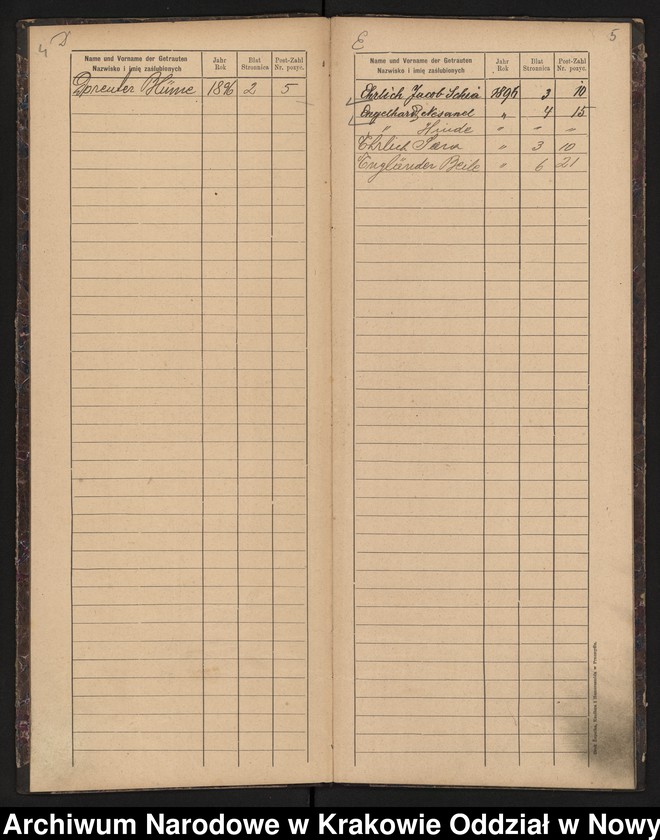 4 D
Name und Vorname der Getrauten Jahr Blat Post-Zahl
Nazwisko i imię zaślubionych Rok Stronnica Nr. pozyc.
Dorenter Blüme 1896 2 5
E 5
Name und Vorname der Getrauten Jahr Blat Post-Zahl
Nazwisko i imię zaślubionych Rok Stronnica Nr. pozyc.
Ehrlich Jacob Schia 1896 3 10
Engelhard Nesanel " 4 15
" Hinde " " "
Ehrlich Sara " 3 10
Engländer Beile " 6 21
Archiwum Narodowe w Krakowie Oddział w Nowy